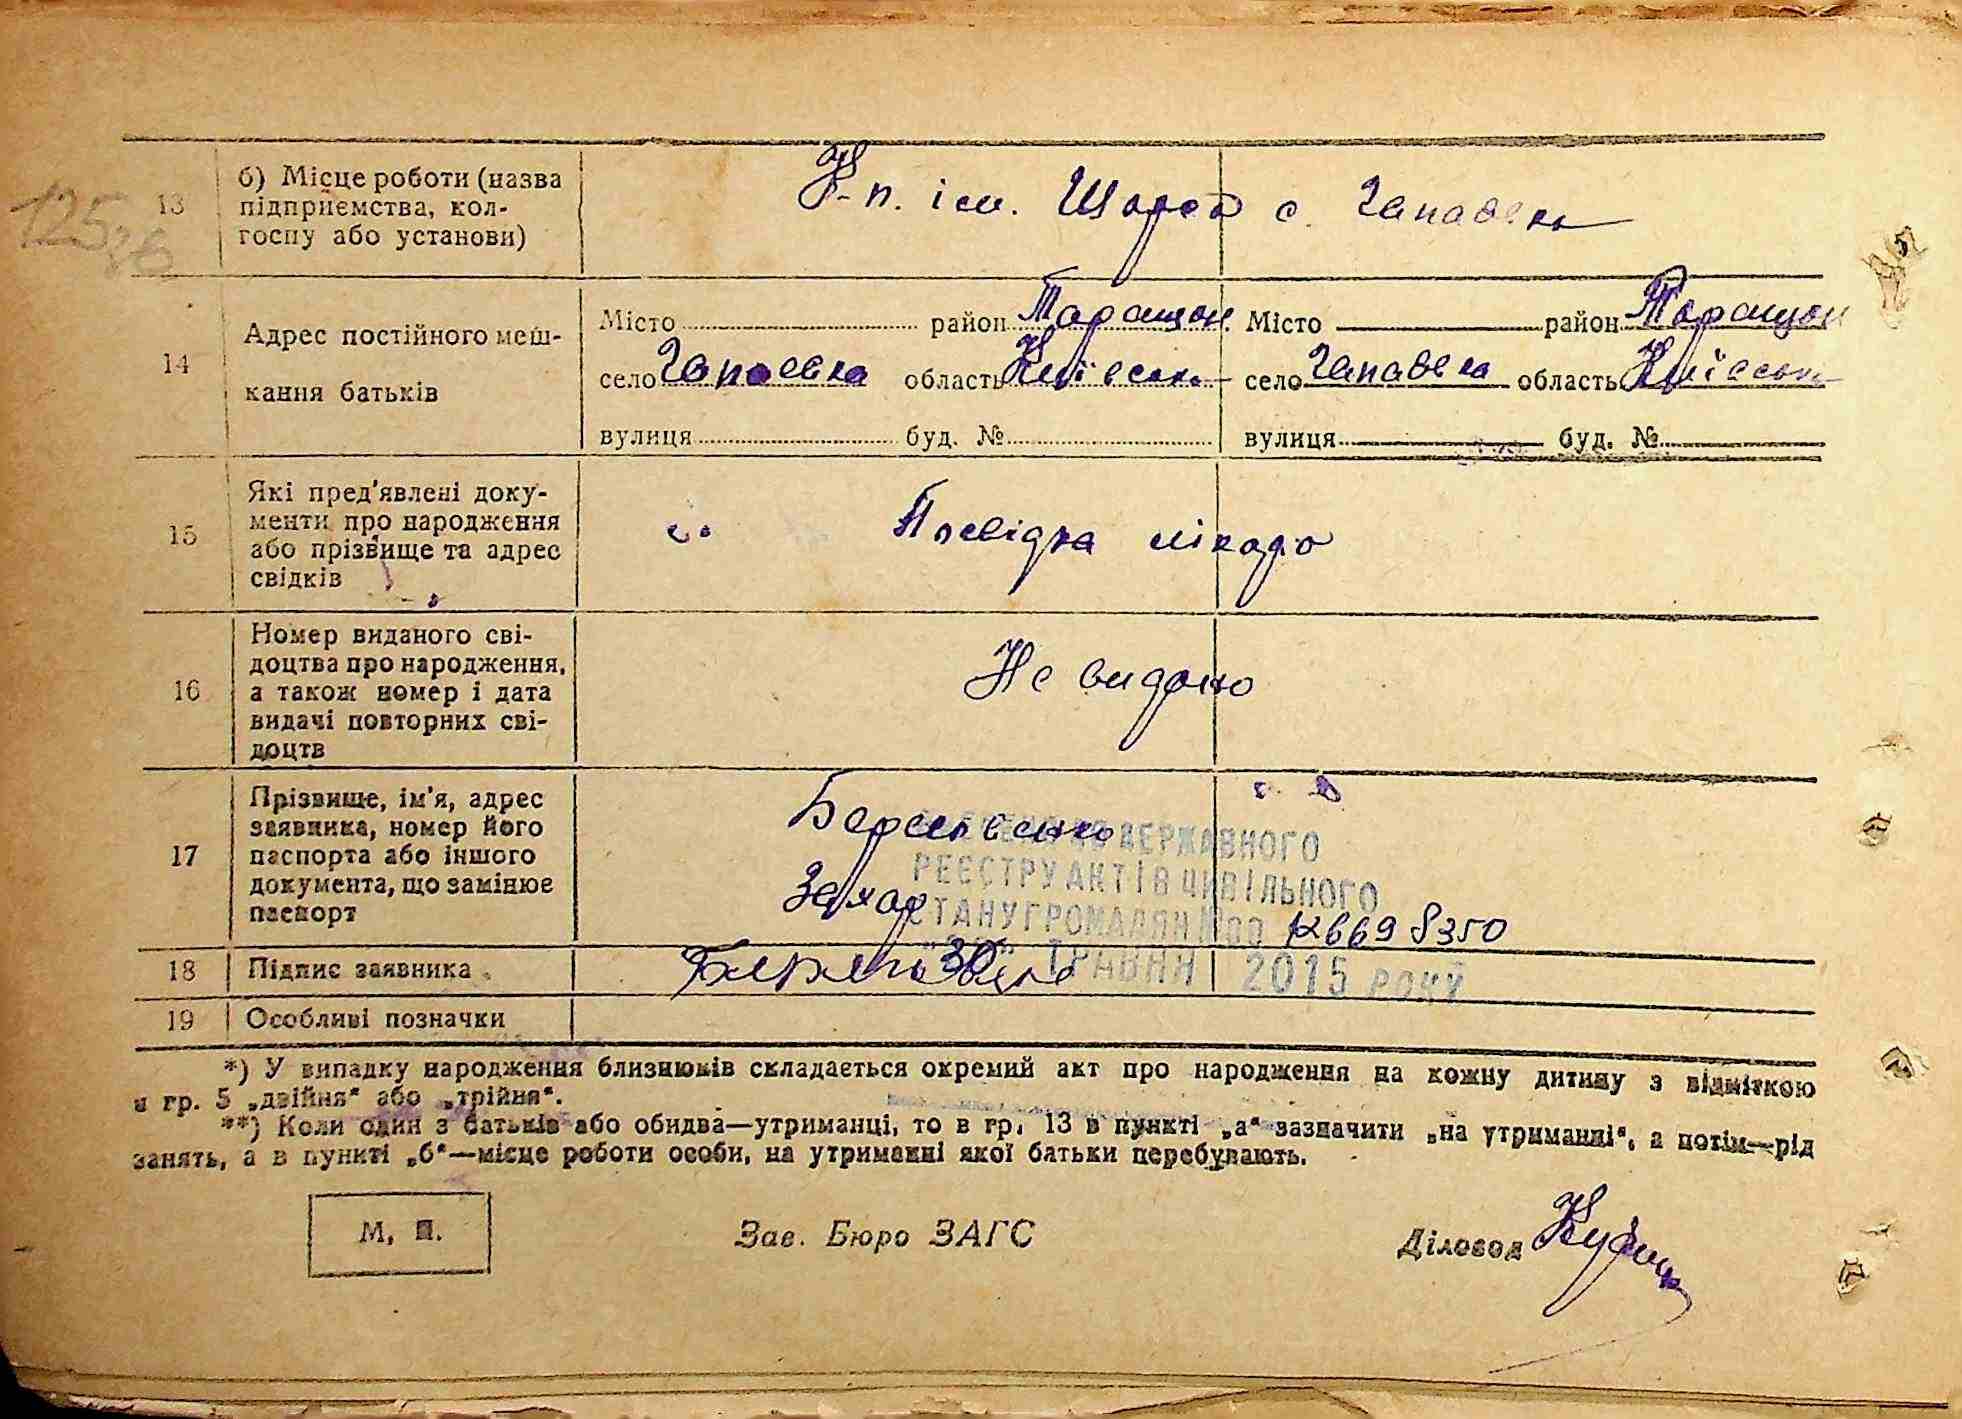 125
13 б) Місце роботи (назва підприємства, кол-госпу або установи) К-п. ім. Щорса с. Чапаєвка
14 Адрес постійного меш-
кання батьків
Місто район Таращан Місто район Таращан
село Чапаєвка область Київськ село Чапаєвка область Київськ
вулиця буд. № вулиця буд. №
15 Які пред'явлені доку-
менти про народження
або прізвище та адрес
свідків
Посвідка лікаря
16 Номер виданого сві-
доцтва про народження,
а також номер і дата
видачі повторних сві-
доцтв
Не видано
17 Прізвище, ім'я, адрес
заявника, номер його
паспорта або іншого
документа, що замінює
паспорт
Захар
ДЕРЖАВНОГО
РЕЄСТРУ АКТІВ ЦИВІЛЬНОГО
СТАНУ ГРОМАДЯН
ТРАВНЯ 2015 РОКУ
18 Підпис заявника
19 Особливі позначки
*) У випадку народження близнюків складається окремий акт про народження на кожну дитину з відміткою
в гр. 5 „двійня“ або „трійня“.
**) Коли один з батьків або обидва—утриманці, то в гр. 13 в пункті „а“ зазначити „на утриманні“, а потім—рід
занять, а в пункті „б“—місце роботи особи, на утриманні якої батьки перебувають.
М. П. Зав. Бюро ЗАГС Діловод